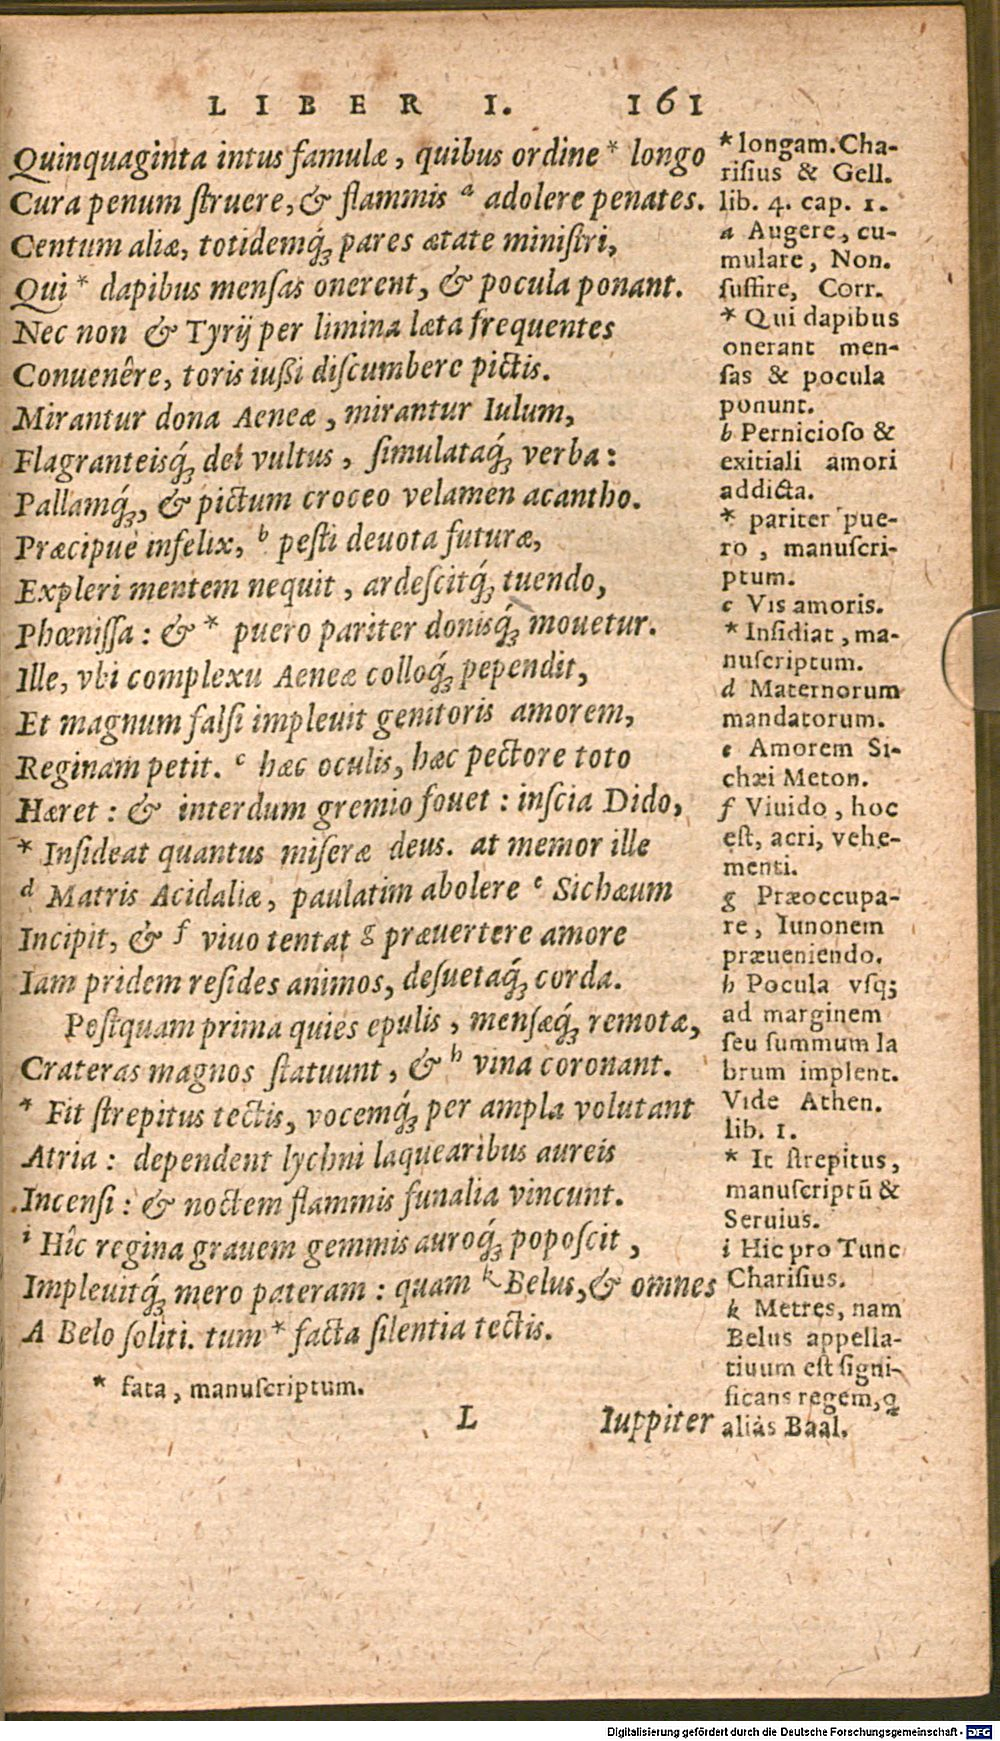 LIBER I. 161
Quinquaginta intus famulæ, quibus ordine * longo
Cura penum ſtruere, & flammis ᵃ adolere penates.
Centum aliæ, totidemq́; pares ætate miniſtri,
Qui * dapibus menſas onerent, & pocula ponant.
Nec non & Tyrij per limina læta frequentes
Conuenêre, toris iußi diſcumbere pictis.
Mirantur dona Aeneæ, mirantur Iulum,
Flagranteisq́; dei vultus, ſimulataq́; verba:
Pallamq́;, & pictum croceo velamen acantho.
Præcipuè infelix, ᵇ peſti deuota futuræ,
Expleri mentem nequit, ardeſcitq́; tuendo,
Phœniſſa: & * puero pariter donisq́; mouetur.
Ille, vbi complexu Aeneæ colloq́; pependit,
Et magnum falſi impleuit genitoris amorem,
Reginam petit. ᶜ hæc oculis, hæc pectore toto
Hæret: & interdum gremio fouet: inſcia Dido,
* Inſideat quantus miſeræ deus. at memor ille
ᵈ Matris Acidaliæ, paulatim abolere ᵉ Sichæum
Incipit, & ᶠ viuo tentat ᵍ præuertere amore
Iam pridem reſides animos, deſuetaq́; corda.
Poſtquam prima quies epulis, menſæq́; remotæ,
Crateras magnos ſtatuunt, & ʰ vina coronant.
* Fit ſtrepitus tectis, vocemq́; per ampla volutant
Atria: dependent lychni laquearibus aureis
Incenſi: & noctem flammis funalia vincunt.
ⁱ Hîc regina grauem gemmis auroq́; popoſcit,
Impleuitq́; mero pateram: quam ᵏ Belus, & omnes
A Belo ſoliti. tum * facta ſilentia tectis.
* fata, manuſcriptum.
L Iuppiter
* longam. Cha-
riſius & Gell.
lib. 4. cap. 1.
a Augere, cu-
mulare, Non.
ſuffire, Corr.
* Qui dapibus
onerant men-
ſas & pocula
ponunt.
b Pernicioſo &
exitiali amori
addicta.
* pariter pue-
ro, manuſcri-
ptum.
c Vis amoris.
* Inſidiat, ma-
nuſcriptum.
d Maternorum
mandatorum.
e Amorem Si-
chæi Meton.
f Viuido, hoc
eſt, acri, vehe-
menti.
g Præoccupa-
re, Iunonem
præueniendo.
h Pocula vſq;
ad marginem
ſeu ſummum la
brum implent.
Vide Athen.
lib. 1.
* It ſtrepitus,
manuſcriptũ &
Seruius.
i Hic pro Tunc
Chariſius.
k Metres, nam
Belus appella-
tiuum eſt ſigni-
ficans regem, q
aliàs Baal.
Digitalisierung gefördert durch die Deutsche Forschungsgemeinschaft - DFG